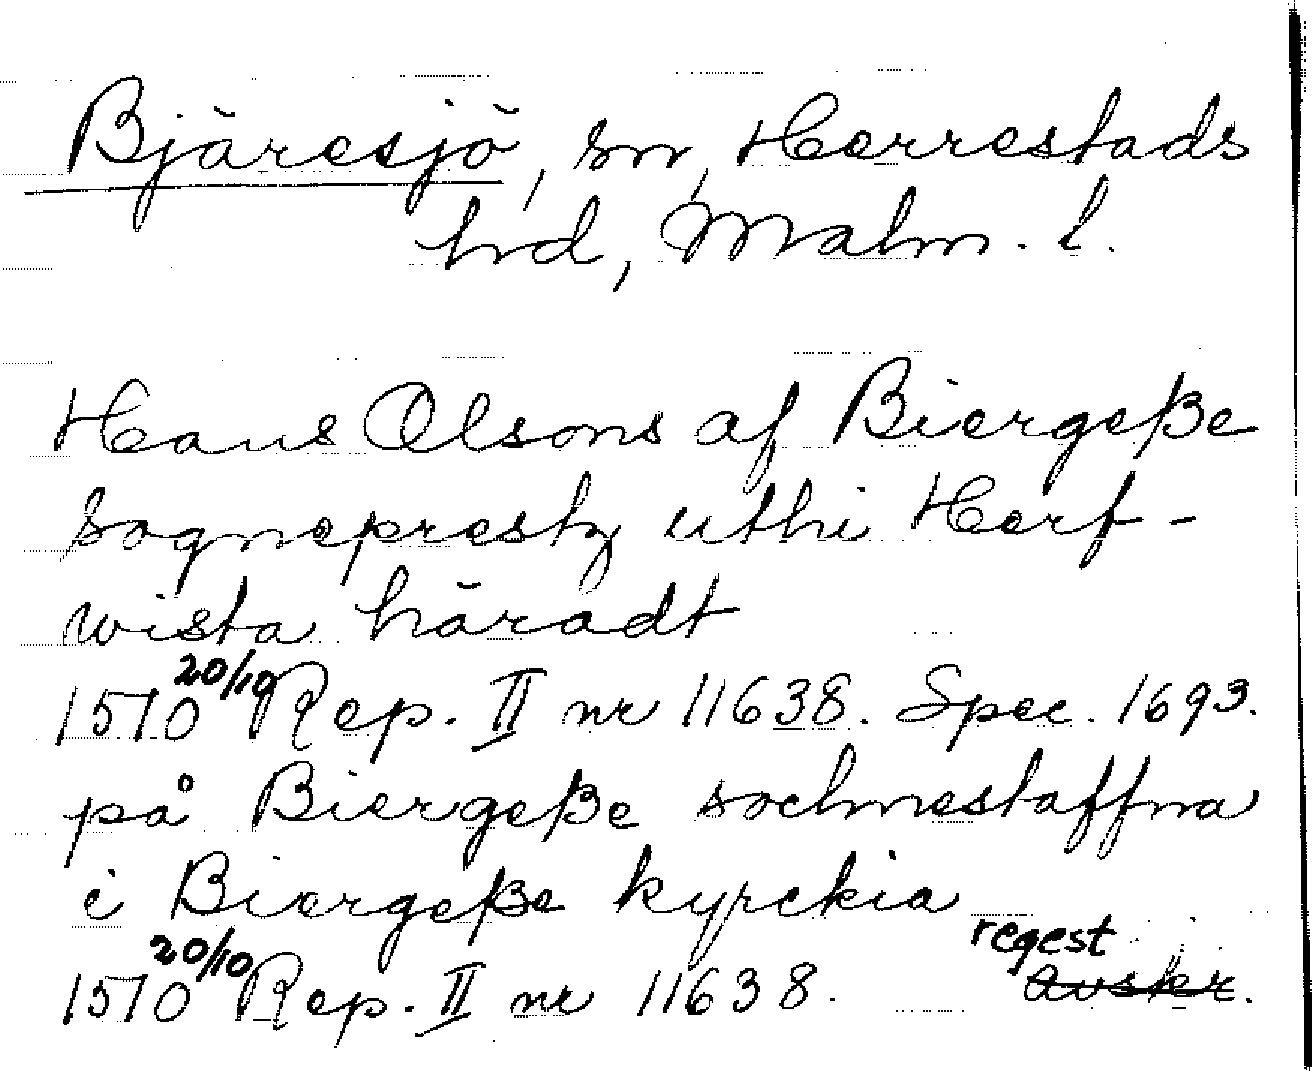 Bjäresjö, sn, Herrestads
hd, Malm. l.
Hans Olsons af Biergeße
sogneprestz uthi Herf-
wista häradt
1570 20/10 Rep. II nr 11638. Spec. 1693.
på Biergeße sochnestaffna
i Biergeße kyrckia
1570 20/10 Rep. II nr 11638. regest
avskr.